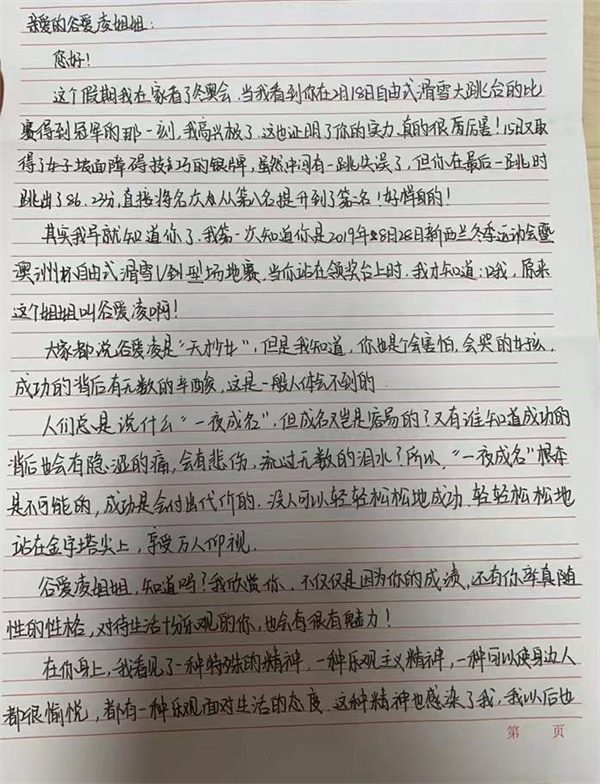 亲爱的谷爱凌姐姐:
您好!
这个假期我在家看了冬奥会,当我看到你在2月18日自由式滑雪大跳台的比
赛得到冠军的那一刻,我高兴极了,这也证明了你的实力,真的很厉害!15日又取
得了女子坡面障碍技巧的银牌,虽然中间有一跳失误了,但你在最后一跳时
跳出了86.23分,直接将名次从第八名提升到了第二名!好样的!
其实我早就知道你了,我第一次知道你是2019年8月28日新西兰冬季运动会暨
澳洲杯自由式滑雪U到型场地赛,当你站在领奖台上时,我才知道:哦,原来
这个姐姐叫谷爱凌啊!
大家都说谷爱凌是“天才少女”,但是我知道,你也是个会害怕,会哭的女孩,
成功的背后有无数的辛酸,这是一般人体会不到的
人们总是说什么“一夜成名”,但成名又岂是容易的?又有谁知道成功的
背后也会有隐涩的痛,会有悲伤,流过无数的泪水?所以,“一夜成名”根本
是不可能的,成功是会付出代价的,没人可以轻轻松松地成功,轻轻松松地
站在金字塔尖上,享受万人仰视.
谷爱凌姐姐,知道吗?我欣赏你,不仅仅是因为你的成绩,还有你率真随
性的性格,对待生活十分乐观的你,也会有很有魅力!
在你身上,我看见了一种特殊的精神,一种乐观主义精神,一种可以使身边人
都很愉悦,都有一种乐观面对生活的态度,这种精神也感染了我,我以后也
第 页